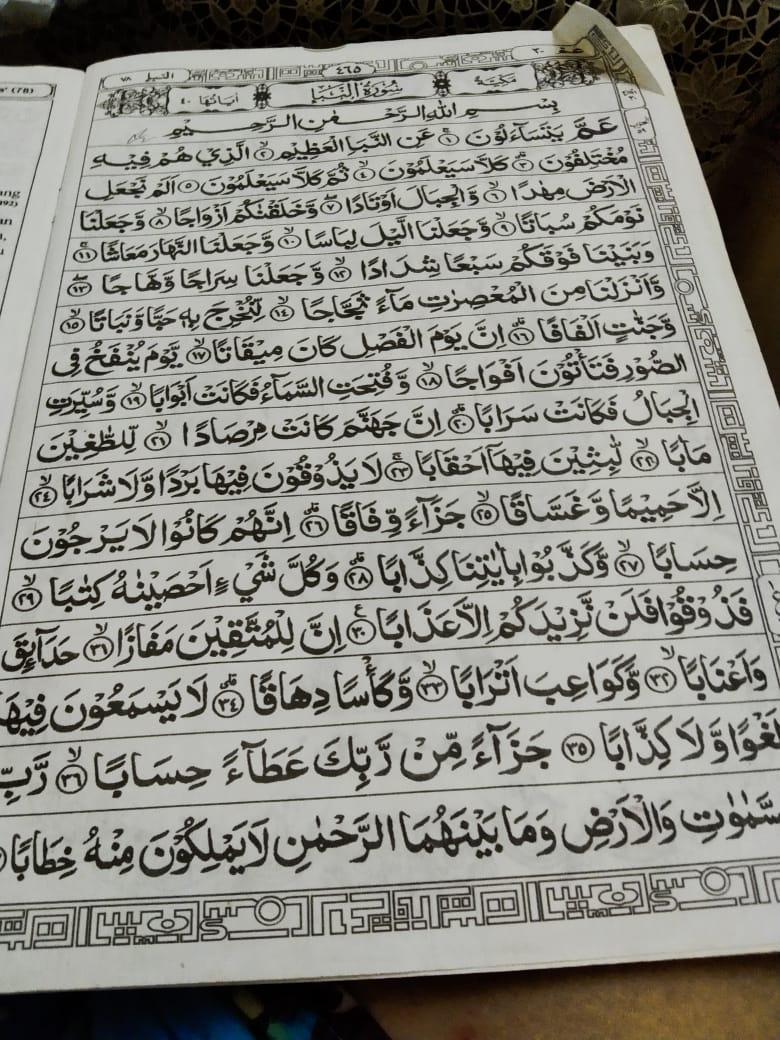 عم ٣٠
٤٦٥
النبا ٧٨
مَكِّيَّة
سُورَةُ النَّبَإِ
اٰيَاتُهَا ٤٠
بِسْمِ اللهِ الرَّحْمٰنِ الرَّحِيْمِ
عَمَّ يَتَسَآءَلُوْنَ ١ عَنِ النَّبَاِ الْعَظِيْمِ ٢ الَّذِيْ هُمْ فِيْهِ
مُخْتَلِفُوْنَ ٣ كَلَّا سَيَعْلَمُوْنَ ٤ ثُمَّ كَلَّا سَيَعْلَمُوْنَ ٥ اَلَمْ نَجْعَلِ
الْاَرْضَ مِهٰدًا ٦ وَّالْجِبَالَ اَوْتَادًا ٧ وَّخَلَقْنٰكُمْ اَزْوَاجًا ٨ وَّجَعَلْنَا
نَوْمَكُمْ سُبَاتًا ٩ وَّجَعَلْنَا الَّيْلَ لِبَاسًا ١٠ وَّجَعَلْنَا النَّهَارَ مَعَاشًا ١١
وَبَنَيْنَا فَوْقَكُمْ سَبْعًا شِدَادًا ١٢ وَّجَعَلْنَا سِرَاجًا وَّهَّاجًا ١٣
وَّاَنْزَلْنَا مِنَ الْمُعْصِرٰتِ مَآءً ثَجَّاجًا ١٤ لِّنُخْرِجَ بِهٖ حَبًّا وَّنَبَاتًا ١٥
وَّجَنّٰتٍ اَلْفَافًا ١٦ اِنَّ يَوْمَ الْفَصْلِ كَانَ مِيْقَاتًا ١٧ يَّوْمَ يُنْفَخُ فِى
الصُّوْرِ فَتَأْتُوْنَ اَفْوَاجًا ١٨ وَّفُتِحَتِ السَّمَآءُ فَكَانَتْ اَبْوَابًا ١٩ وَّسُيِّرَتِ
الْجِبَالُ فَكَانَتْ سَرَابًا ٢٠ اِنَّ جَهَنَّمَ كَانَتْ مِرْصَادًا ٢١ لِّلطّٰغِيْنَ
مَاٰبًا ٢٢ لّٰبِثِيْنَ فِيْهَآ اَحْقَابًا ٢٣ لَا يَذُوْقُوْنَ فِيْهَا بَرْدًا وَّلَا شَرَابًا ٢٤
اِلَّا حَمِيْمًا وَّغَسَّاقًا ٢٥ جَزَآءً وِّفَاقًا ٢٦ اِنَّهُمْ كَانُوْا لَا يَرْجُوْنَ
حِسَابًا ٢٧ وَّكَذَّبُوْا بِاٰيٰتِنَا كِذَّابًا ٢٨ وَكُلَّ شَيْءٍ اَحْصَيْنٰهُ كِتٰبًا ٢٩
فَذُوْقُوْا فَلَنْ نَّزِيْدَكُمْ اِلَّا عَذَابًا ٣٠ اِنَّ لِلْمُتَّقِيْنَ مَفَازًا ٣١ حَدَآئِقَ
وَاَعْنَابًا ٣٢ وَّكَوَاعِبَ اَتْرَابًا ٣٣ وَّكَأْسًا دِهَاقًا ٣٤ لَا يَسْمَعُوْنَ فِيْهَا
لَغْوًا وَّلَا كِذَّابًا ٣٥ جَزَآءً مِّنْ رَّبِّكَ عَطَآءً حِسَابًا ٣٦ رَّبِّ
السَّمٰوٰتِ وَالْاَرْضِ وَمَا بَيْنَهُمَا الرَّحْمٰنِ لَا يَمْلِكُوْنَ مِنْهُ خِطَابًا